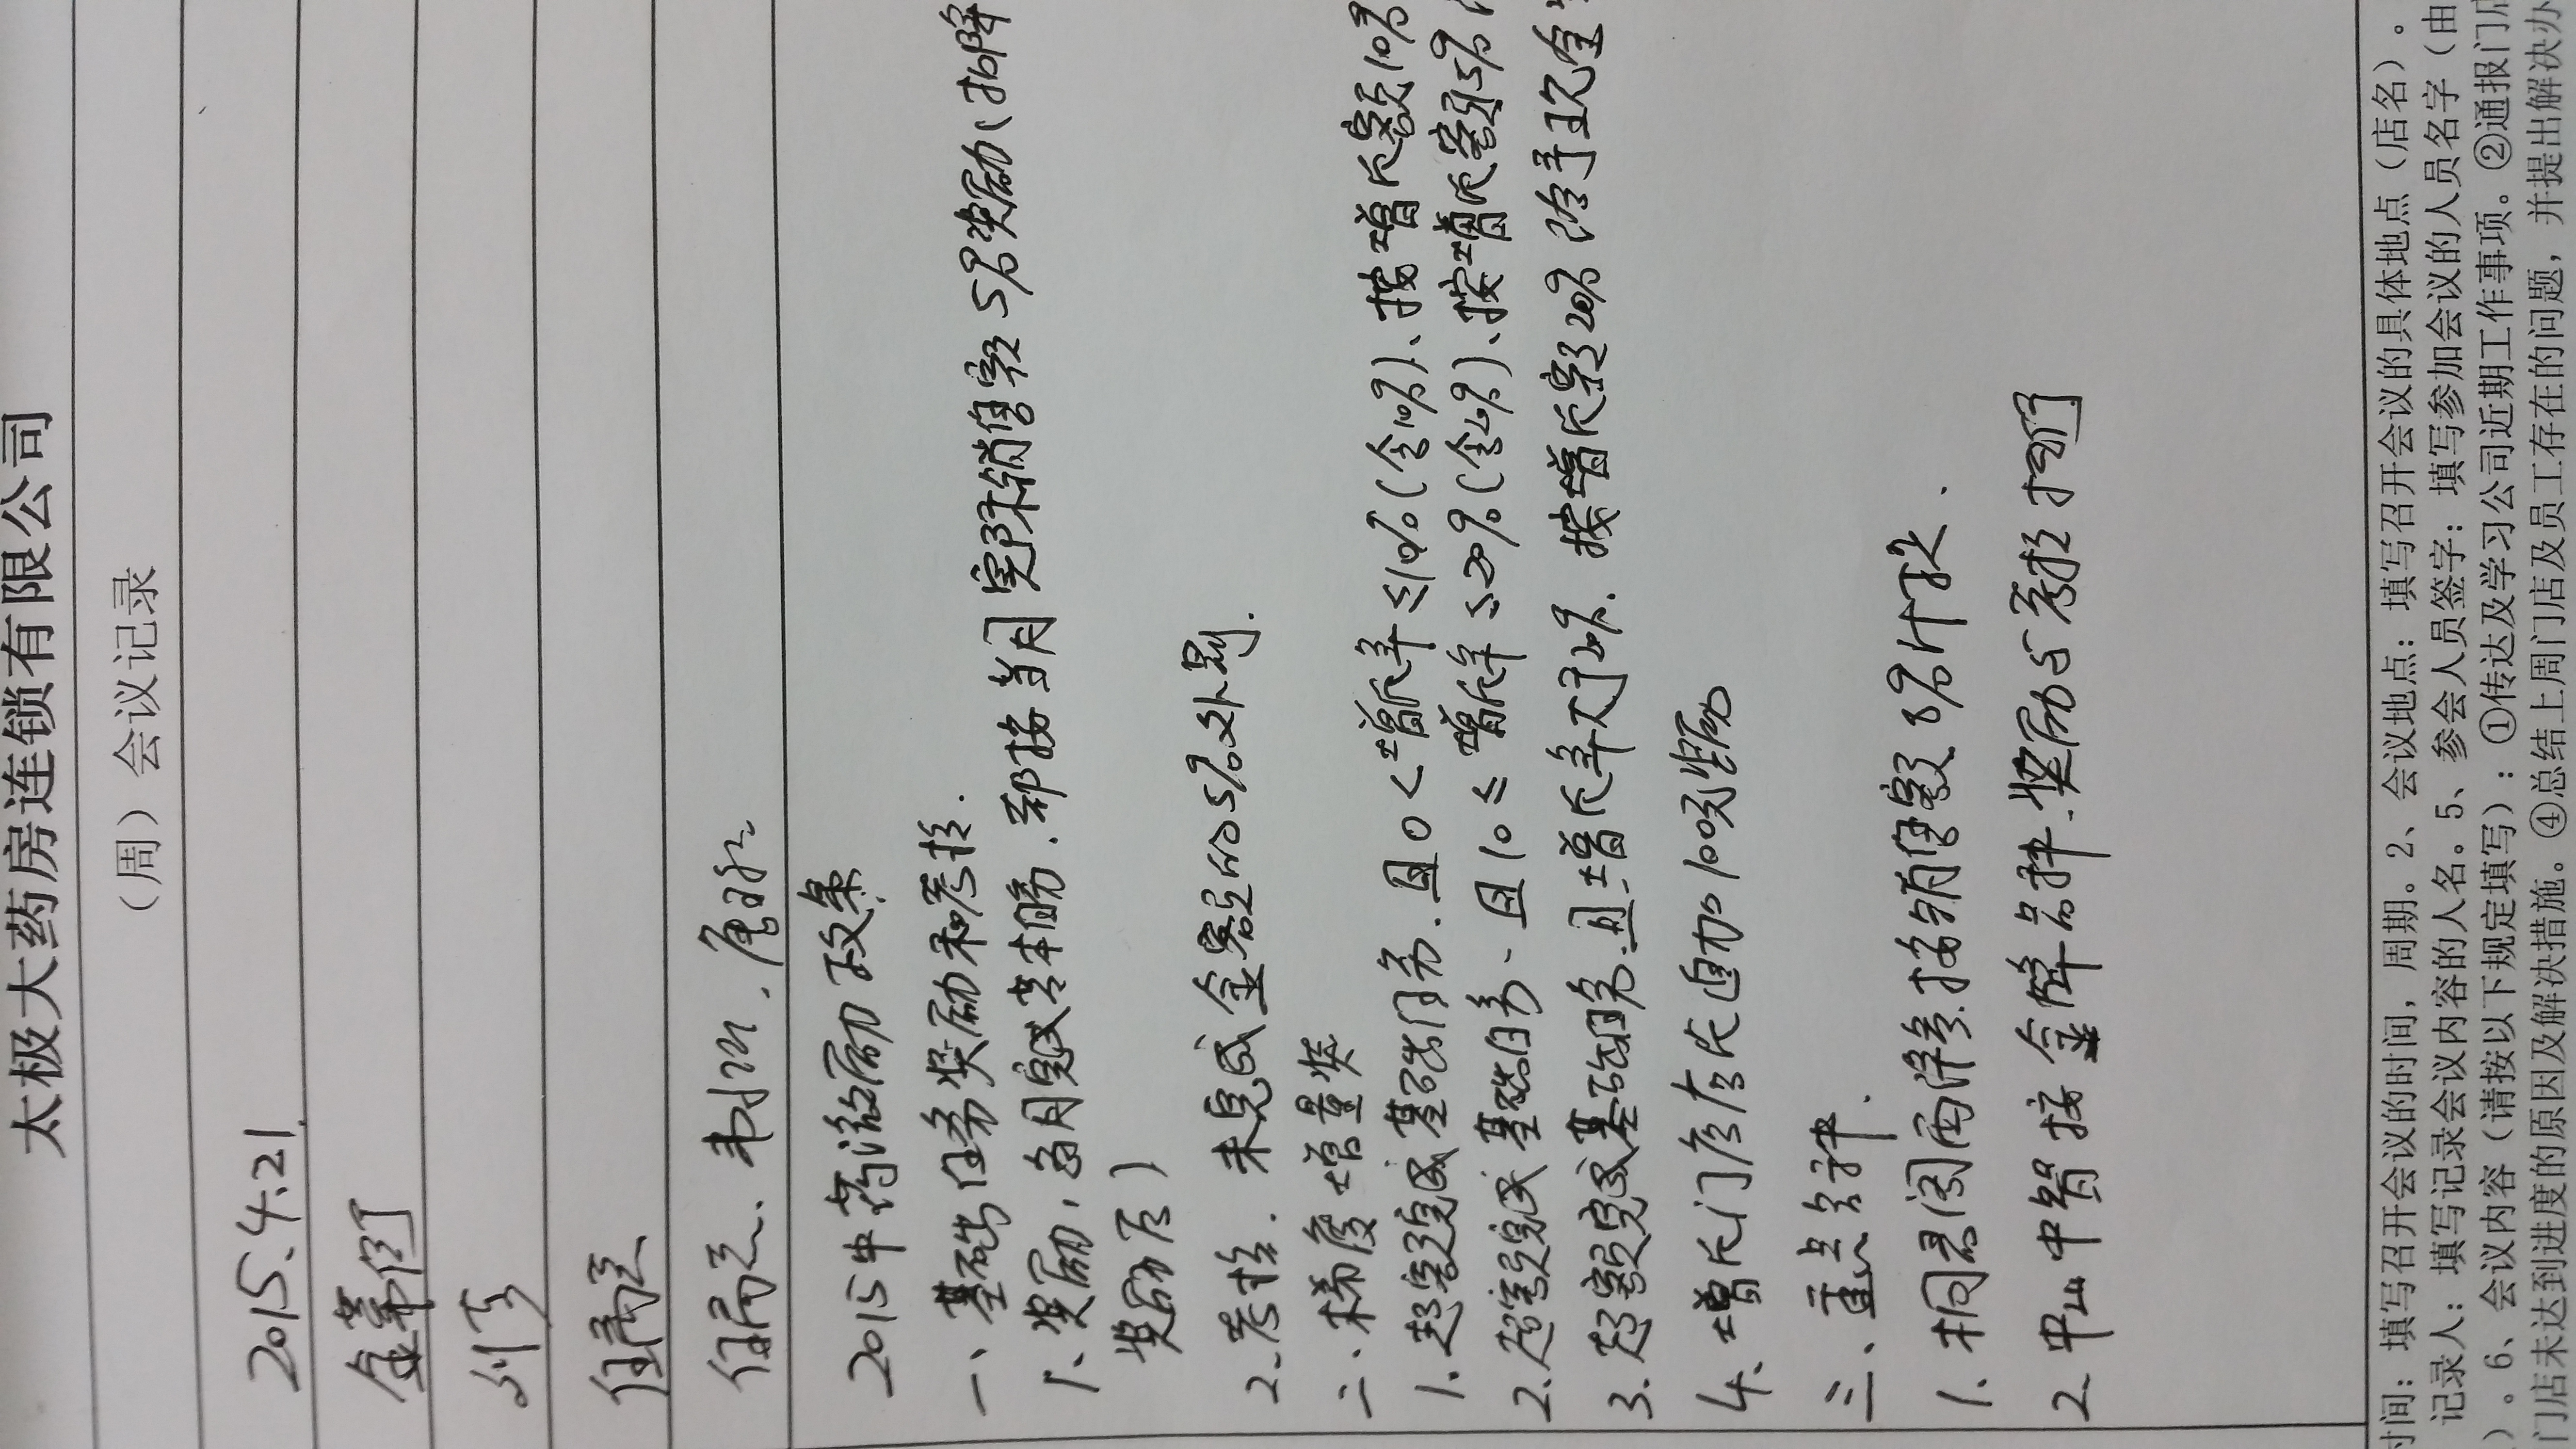 太极大药房连锁有限公司
（周）会议记录
2015.4.21.
2015中药激励政策
一、基础任务奖励和考核.
1、奖励：当月完成基本任务.都按当月实际销售额5%奖励(扣除
奖励后)
2.考核. 未完成金额的5%处罚.
二.梯度增量奖
1.超额完成基础任务.且0<增长率≤10%(含10%)、按增长额10%
2.超额完成基础任务、且10≤增长率≤20%(含20%)、按增长额15%
3.超额完成基础任务.且增长率大于20%.按增长额20%给予现金
4.增长门店店长追加100元奖励
三、重点品种.
1、桐君阁西洋参按销售额8%计提.
2.中山中智按金牌品种.奖励与考核执行
时间：填写召开会议的时间，周期。2、会议地点：填写召开会议的具体地点（店名）。
记录人：填写记录会议内容的人名。5、参会人员签字：填写参加会议的人员名字（由
）。6、会议内容（请按以下规定填写）：①传达及学习公司近期工作事项。②通报门店
门店未达到进度的原因及解决措施。④总结上周门店及员工存在的问题，并提出解决办